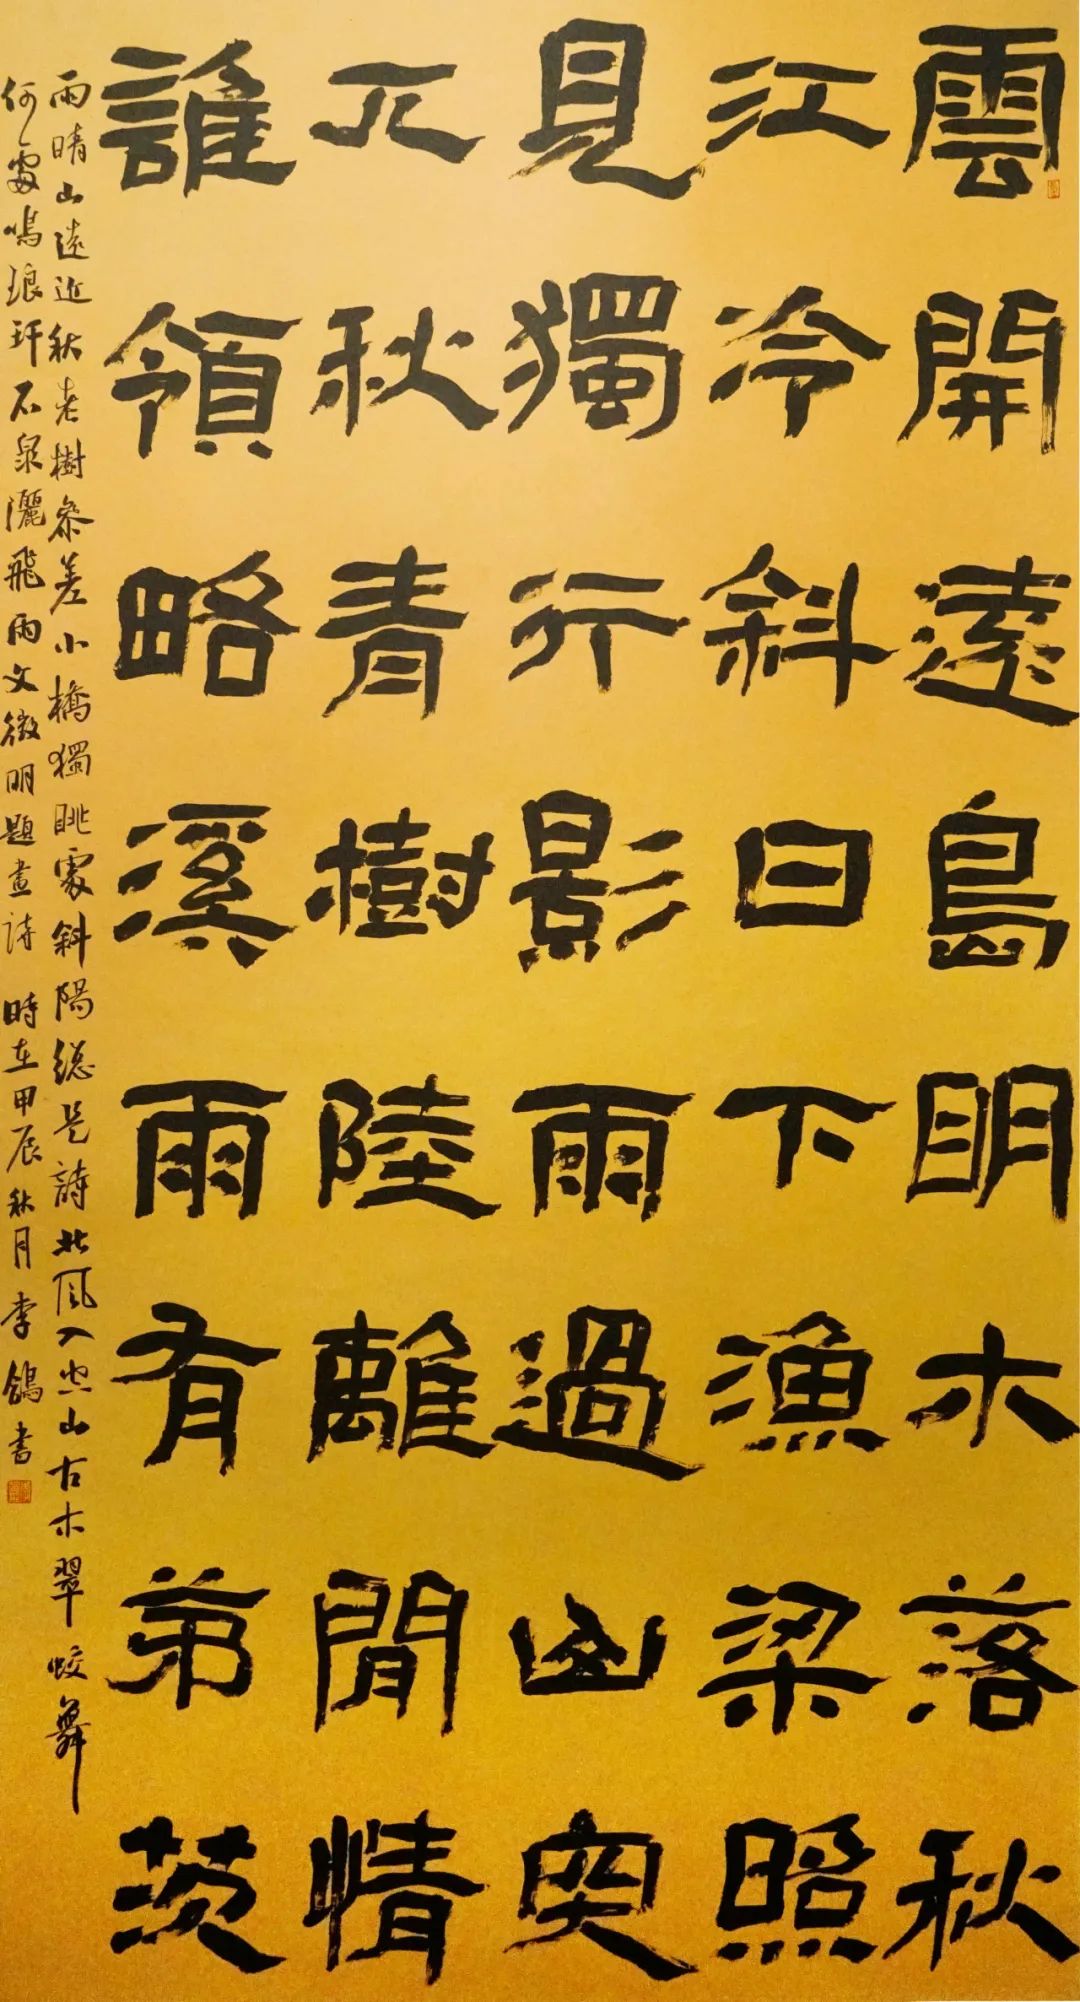 雲開遠島明木落秋
江冷斜日下漁梁照
見獨行影雨過山突
兀秋青樹陸離閒情
誰領略溪雨有茅茨
雨晴山遠近秋老樹參差小橋獨眺處斜陽總是詩北風入空山古木翠蛟舞
何處鳴琅玕石泉灑飛雨文徵明題畫詩 時在甲辰秋月李鴿書